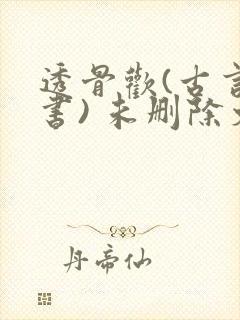 透骨歡(古言
書)未删除文
丹帝仙